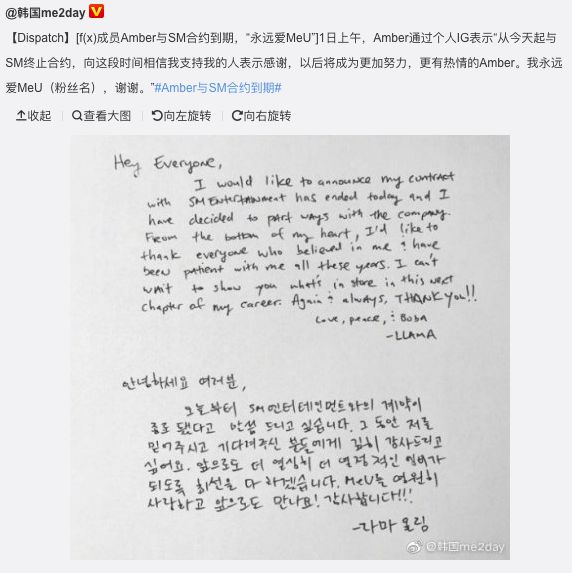 @韩国me2day
【Dispatch】[f(x)成员Amber与SM合约到期，“永远爱MeU”]1日上午，Amber通过个人IG表示“从今天起与
SM终止合约，向这段时间相信我支持我的人表示感谢，以后将成为更加努力，更有热情的Amber。我永远
爱MeU（粉丝名），谢谢。”#Amber与SM合约到期#
收起 查看大图 向左旋转 向右旋转
Hey Everyone,
I would like to announce my contract
with SM Entertainment has ended today and I
have decided to part ways with the company.
From the bottom of my heart, I'd like to
thank everyone who believed in me & have
been patient with me all these years. I can't
wait to show you what's in store in this next
chapter of my career. Again & always, THANK YOU!!
Love, peace, & Boba
-LLAMA
안녕하세요 여러분,
오늘부터 SM엔터테인먼트와의 계약이
종료 됐다고 말씀 드리고 싶습니다. 그 동안 저를
믿어주시고 기다려주신 분들에게 깊히 감사드리고
싶어요. 앞으로도 더 열심히 더 열정적인 엠버가
되도록 최선을 다 하겠습니다. MeU를 영원히
사랑하고 앞으로도 만나요! 감사합니다!!!
-라마 올림
@韩国me2day